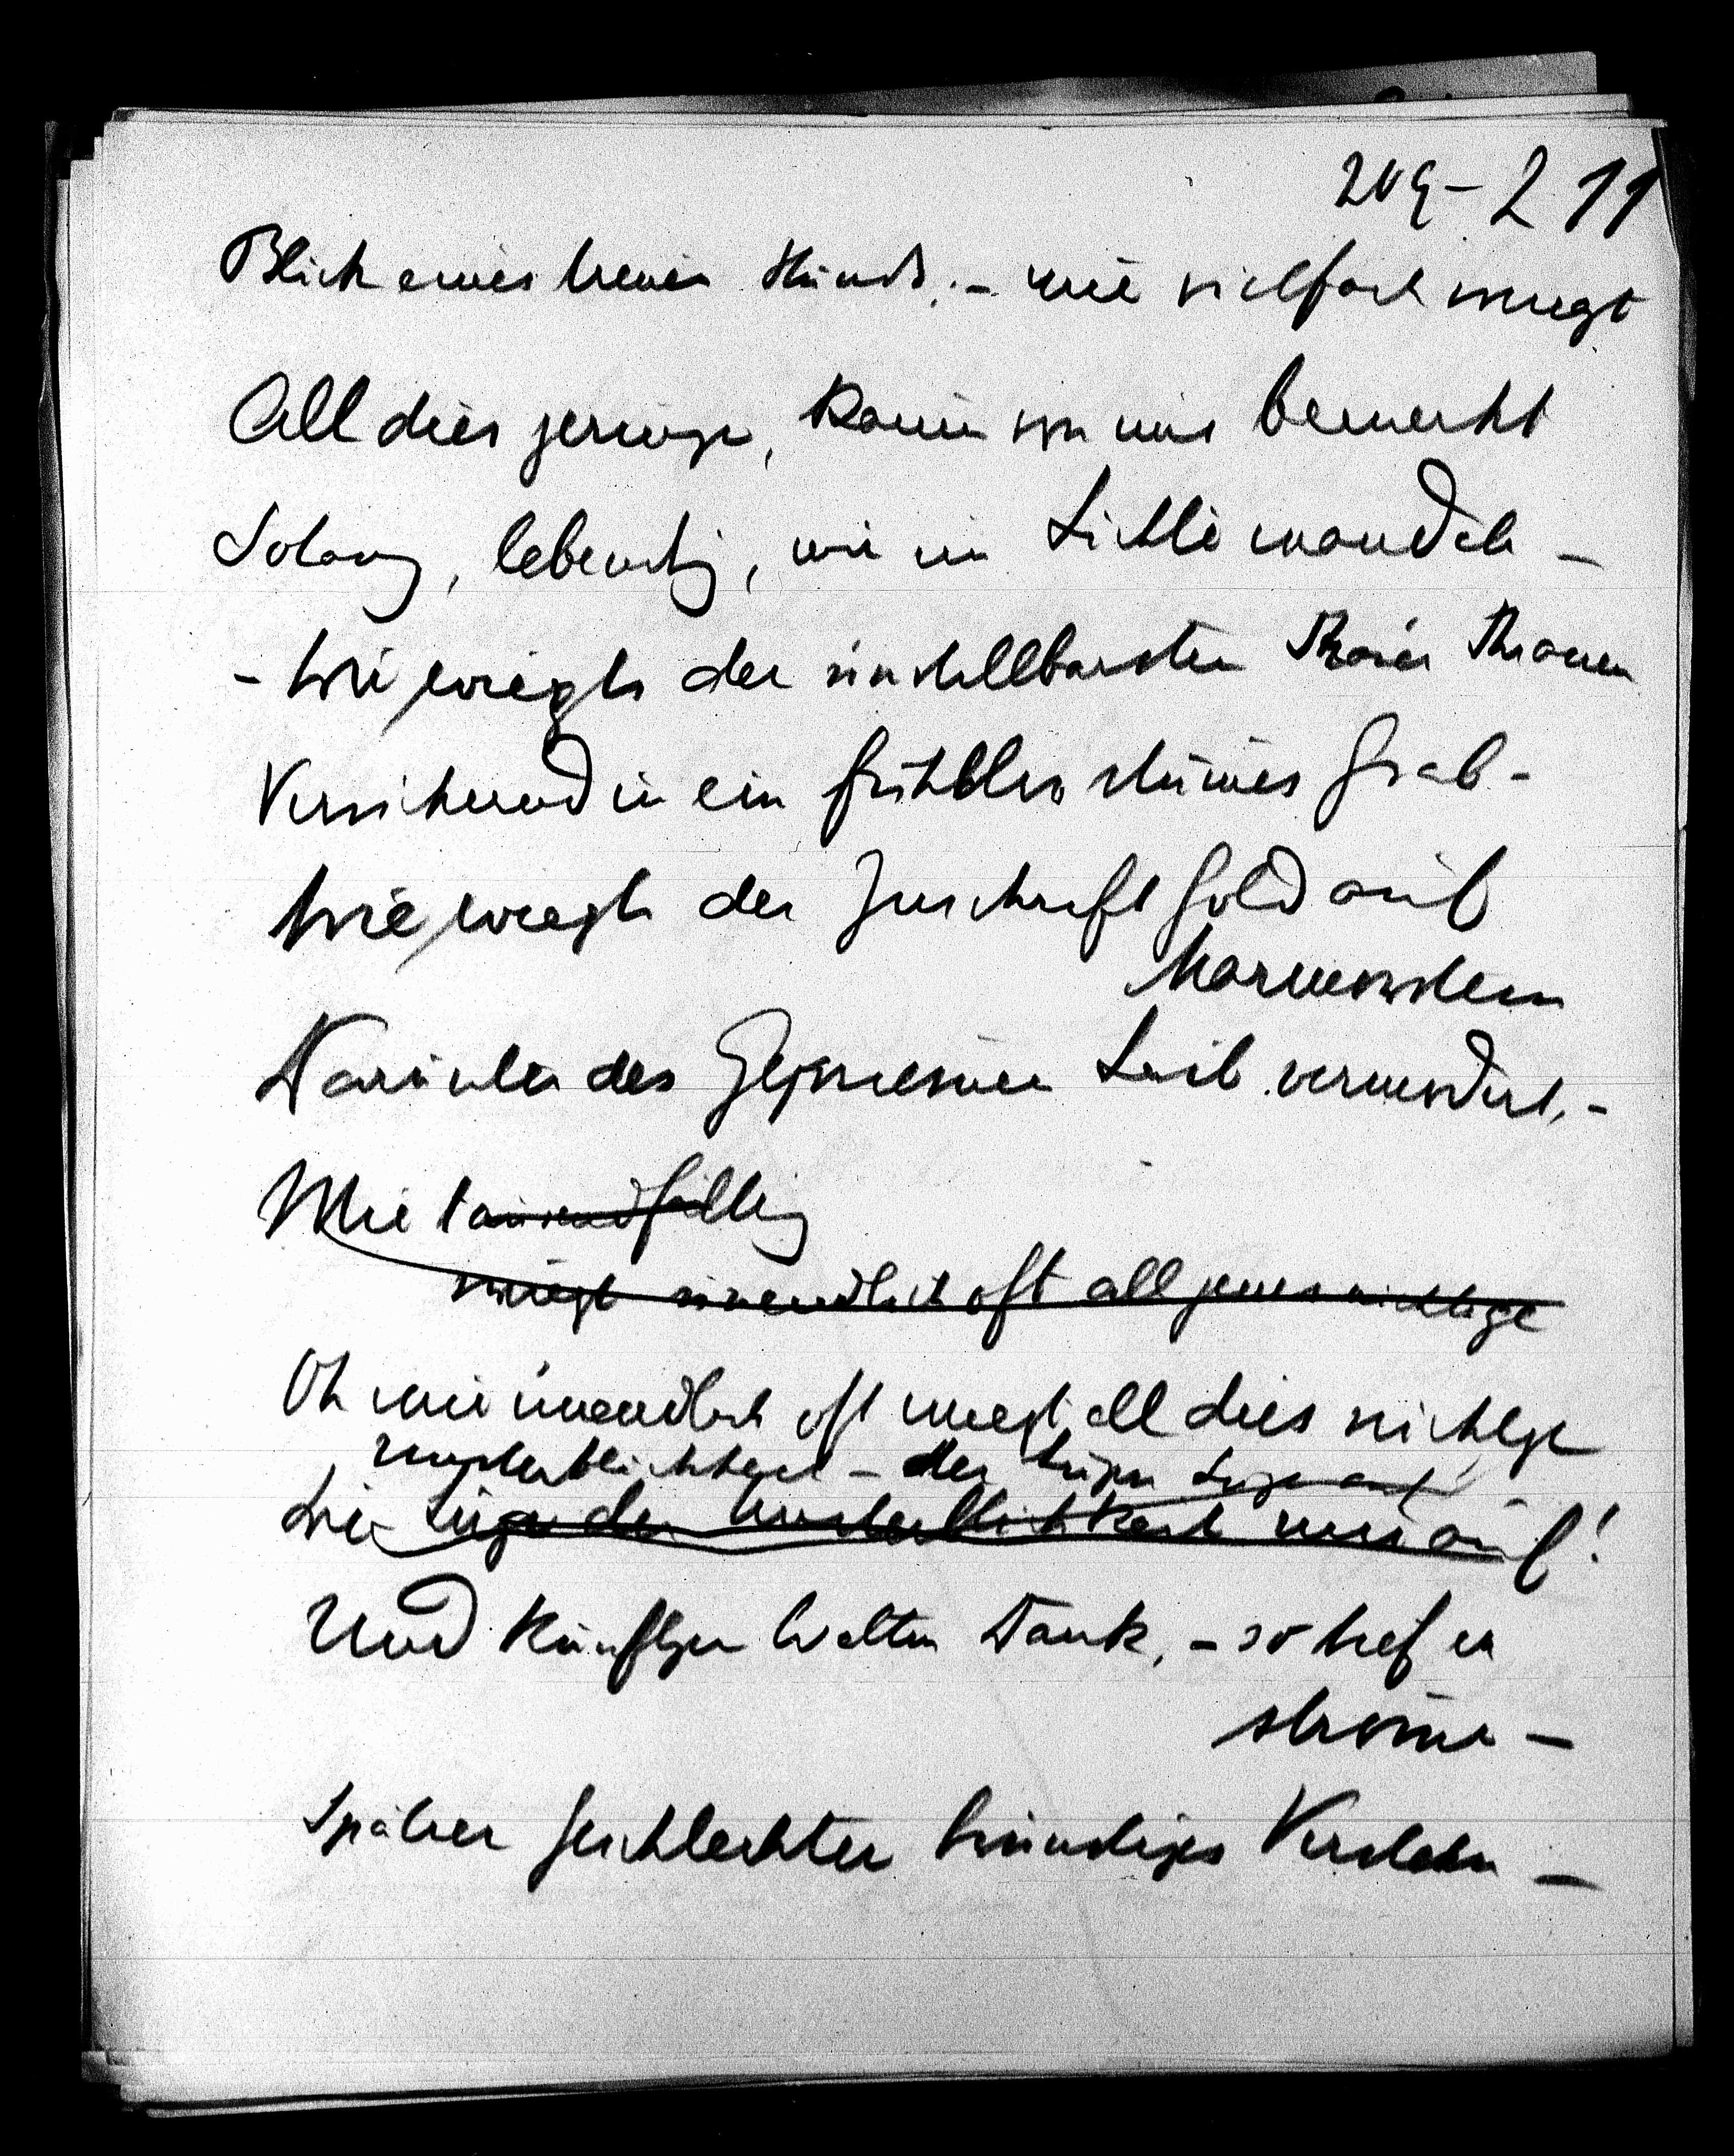 209 – 211
Blick eines treuen Hunds, – wie vielfach wiegt
All dies geringe, kaum von uns bemerkt
Solang, lebendig, wir im Lichte wandeln –
– Wie wiegts der untröstbarsten Thränen
Versickernd in ein fühllos stummes Grab –
Wie wiegts der Inschrift Gold auf
Marmorstein
Darunter des Gepriesnen Leib verwest, –
Wie tausendfältig
wiegt unendlich oft all jenes nichtige
Oh wie unendlich oft wiegt all dies nichtge
Unsterblichkeit – der Lügen Lüge auf
Die Lüge der Unsterblichkeit uns auf!
Und künftger Welten Dank, – so tief er
ström –
Später Geschlechter Verstehn –